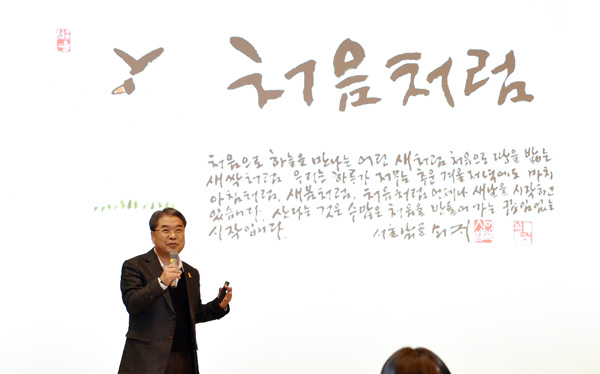 처음처럼
처음으로 하늘을 만나는 어린 새처럼 처음으로 땅을 밟는
새싹처럼 우리는 하루가 저무는 추운 겨울저녁에도 마치
아침처럼, 새봄처럼, 처음처럼 언제나 새날을 시작하고
있습니다. 산다는 것은 수많은 처음을 만들어 가는 끊임없는
시작입니다. 쇠귀